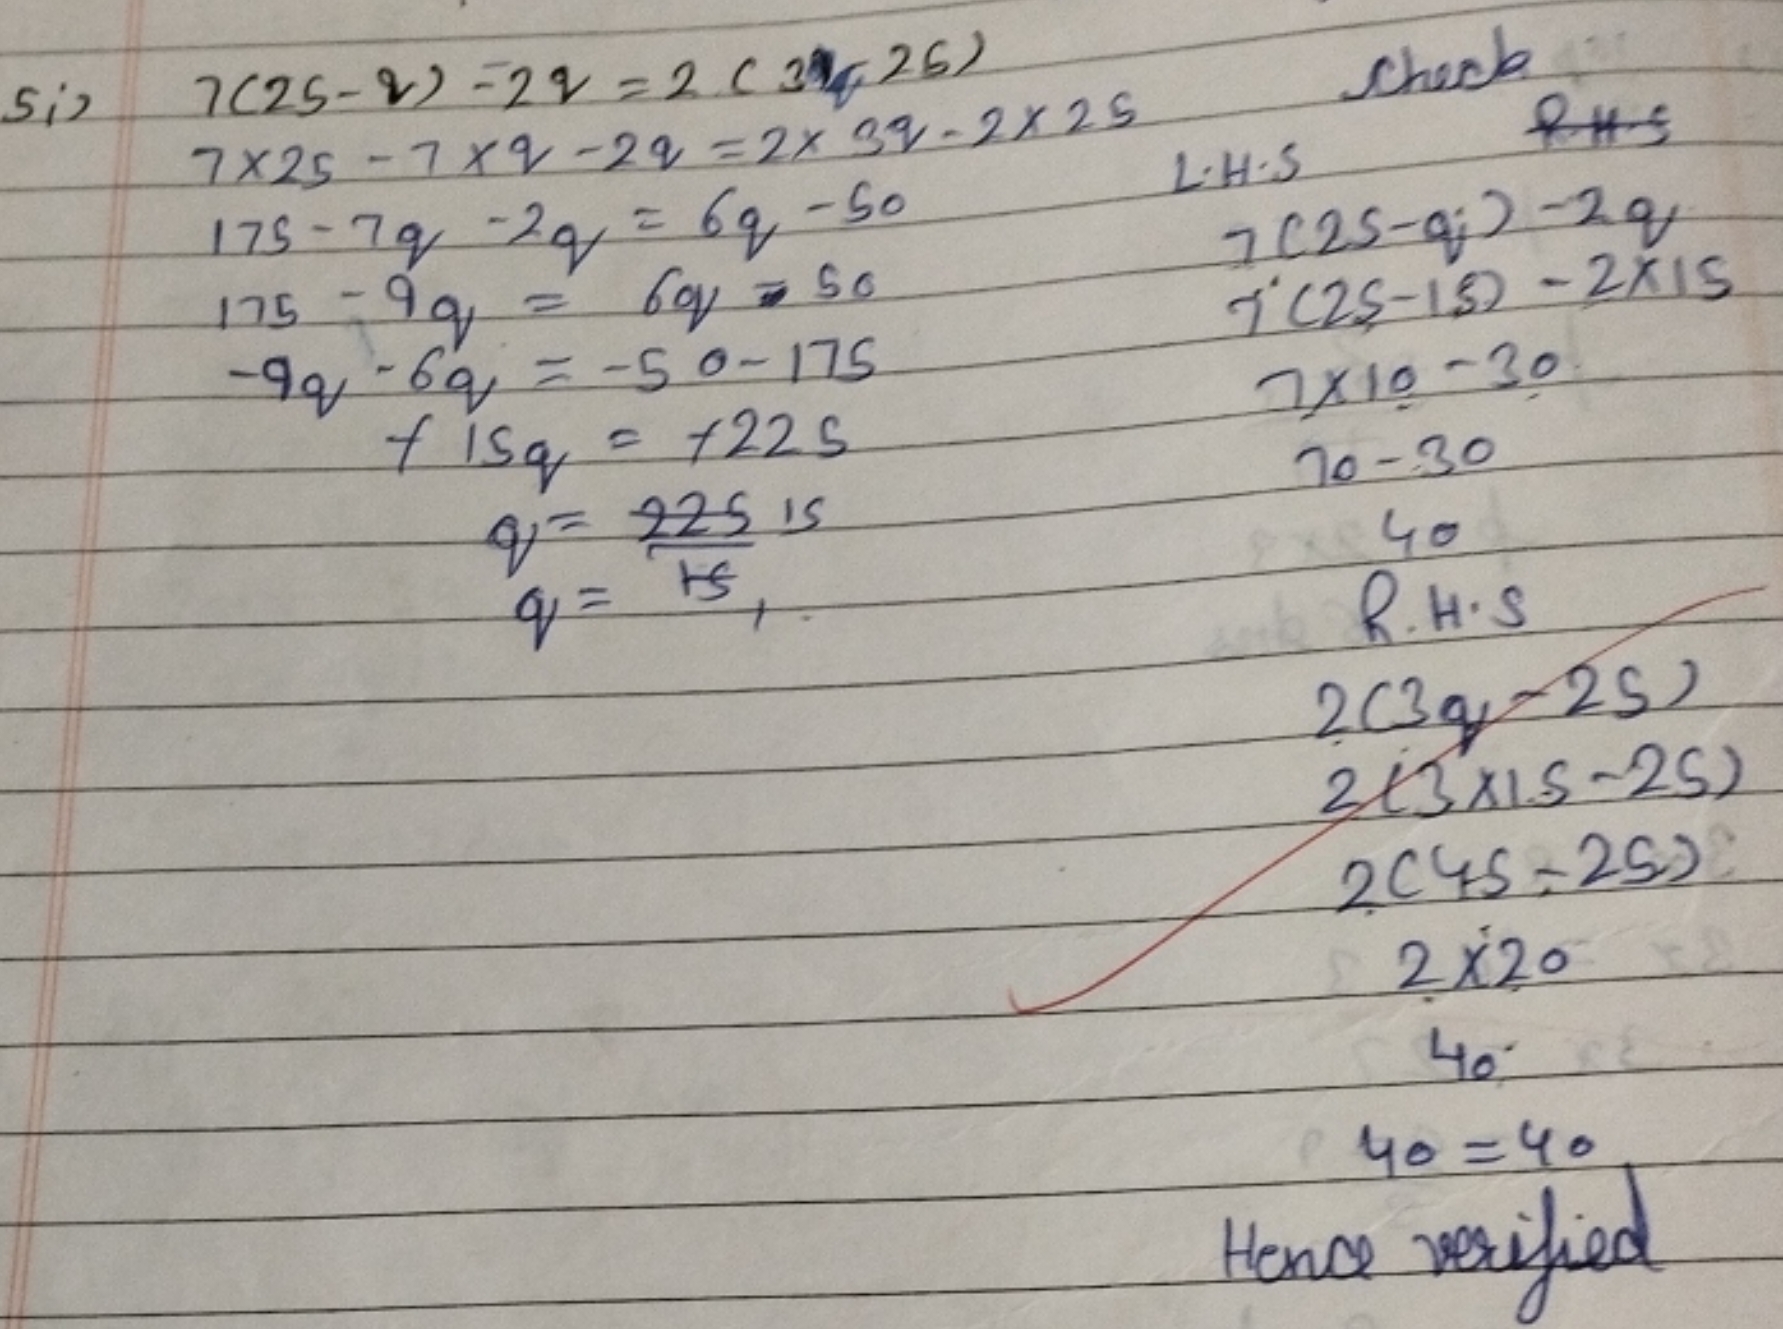 5i) 7(25-q) -2q = 2(3q-25)
7×25 -7×q -2q = 2×3q-2×25
175-7q -2q = 6q -50
175 -9q = 6q - 50
-9q -6q = -50-175
+15q = +225
q = 225 15
15
q =
Check
R.H.S
L.H.S
7(25-q) -2q
7(25-15) -2×15
7×10 -30
70-30
40
R.H.S
2(3q-25)
2(3×15-25)
2(45-25)
2×20
40
40=40
Hence verified